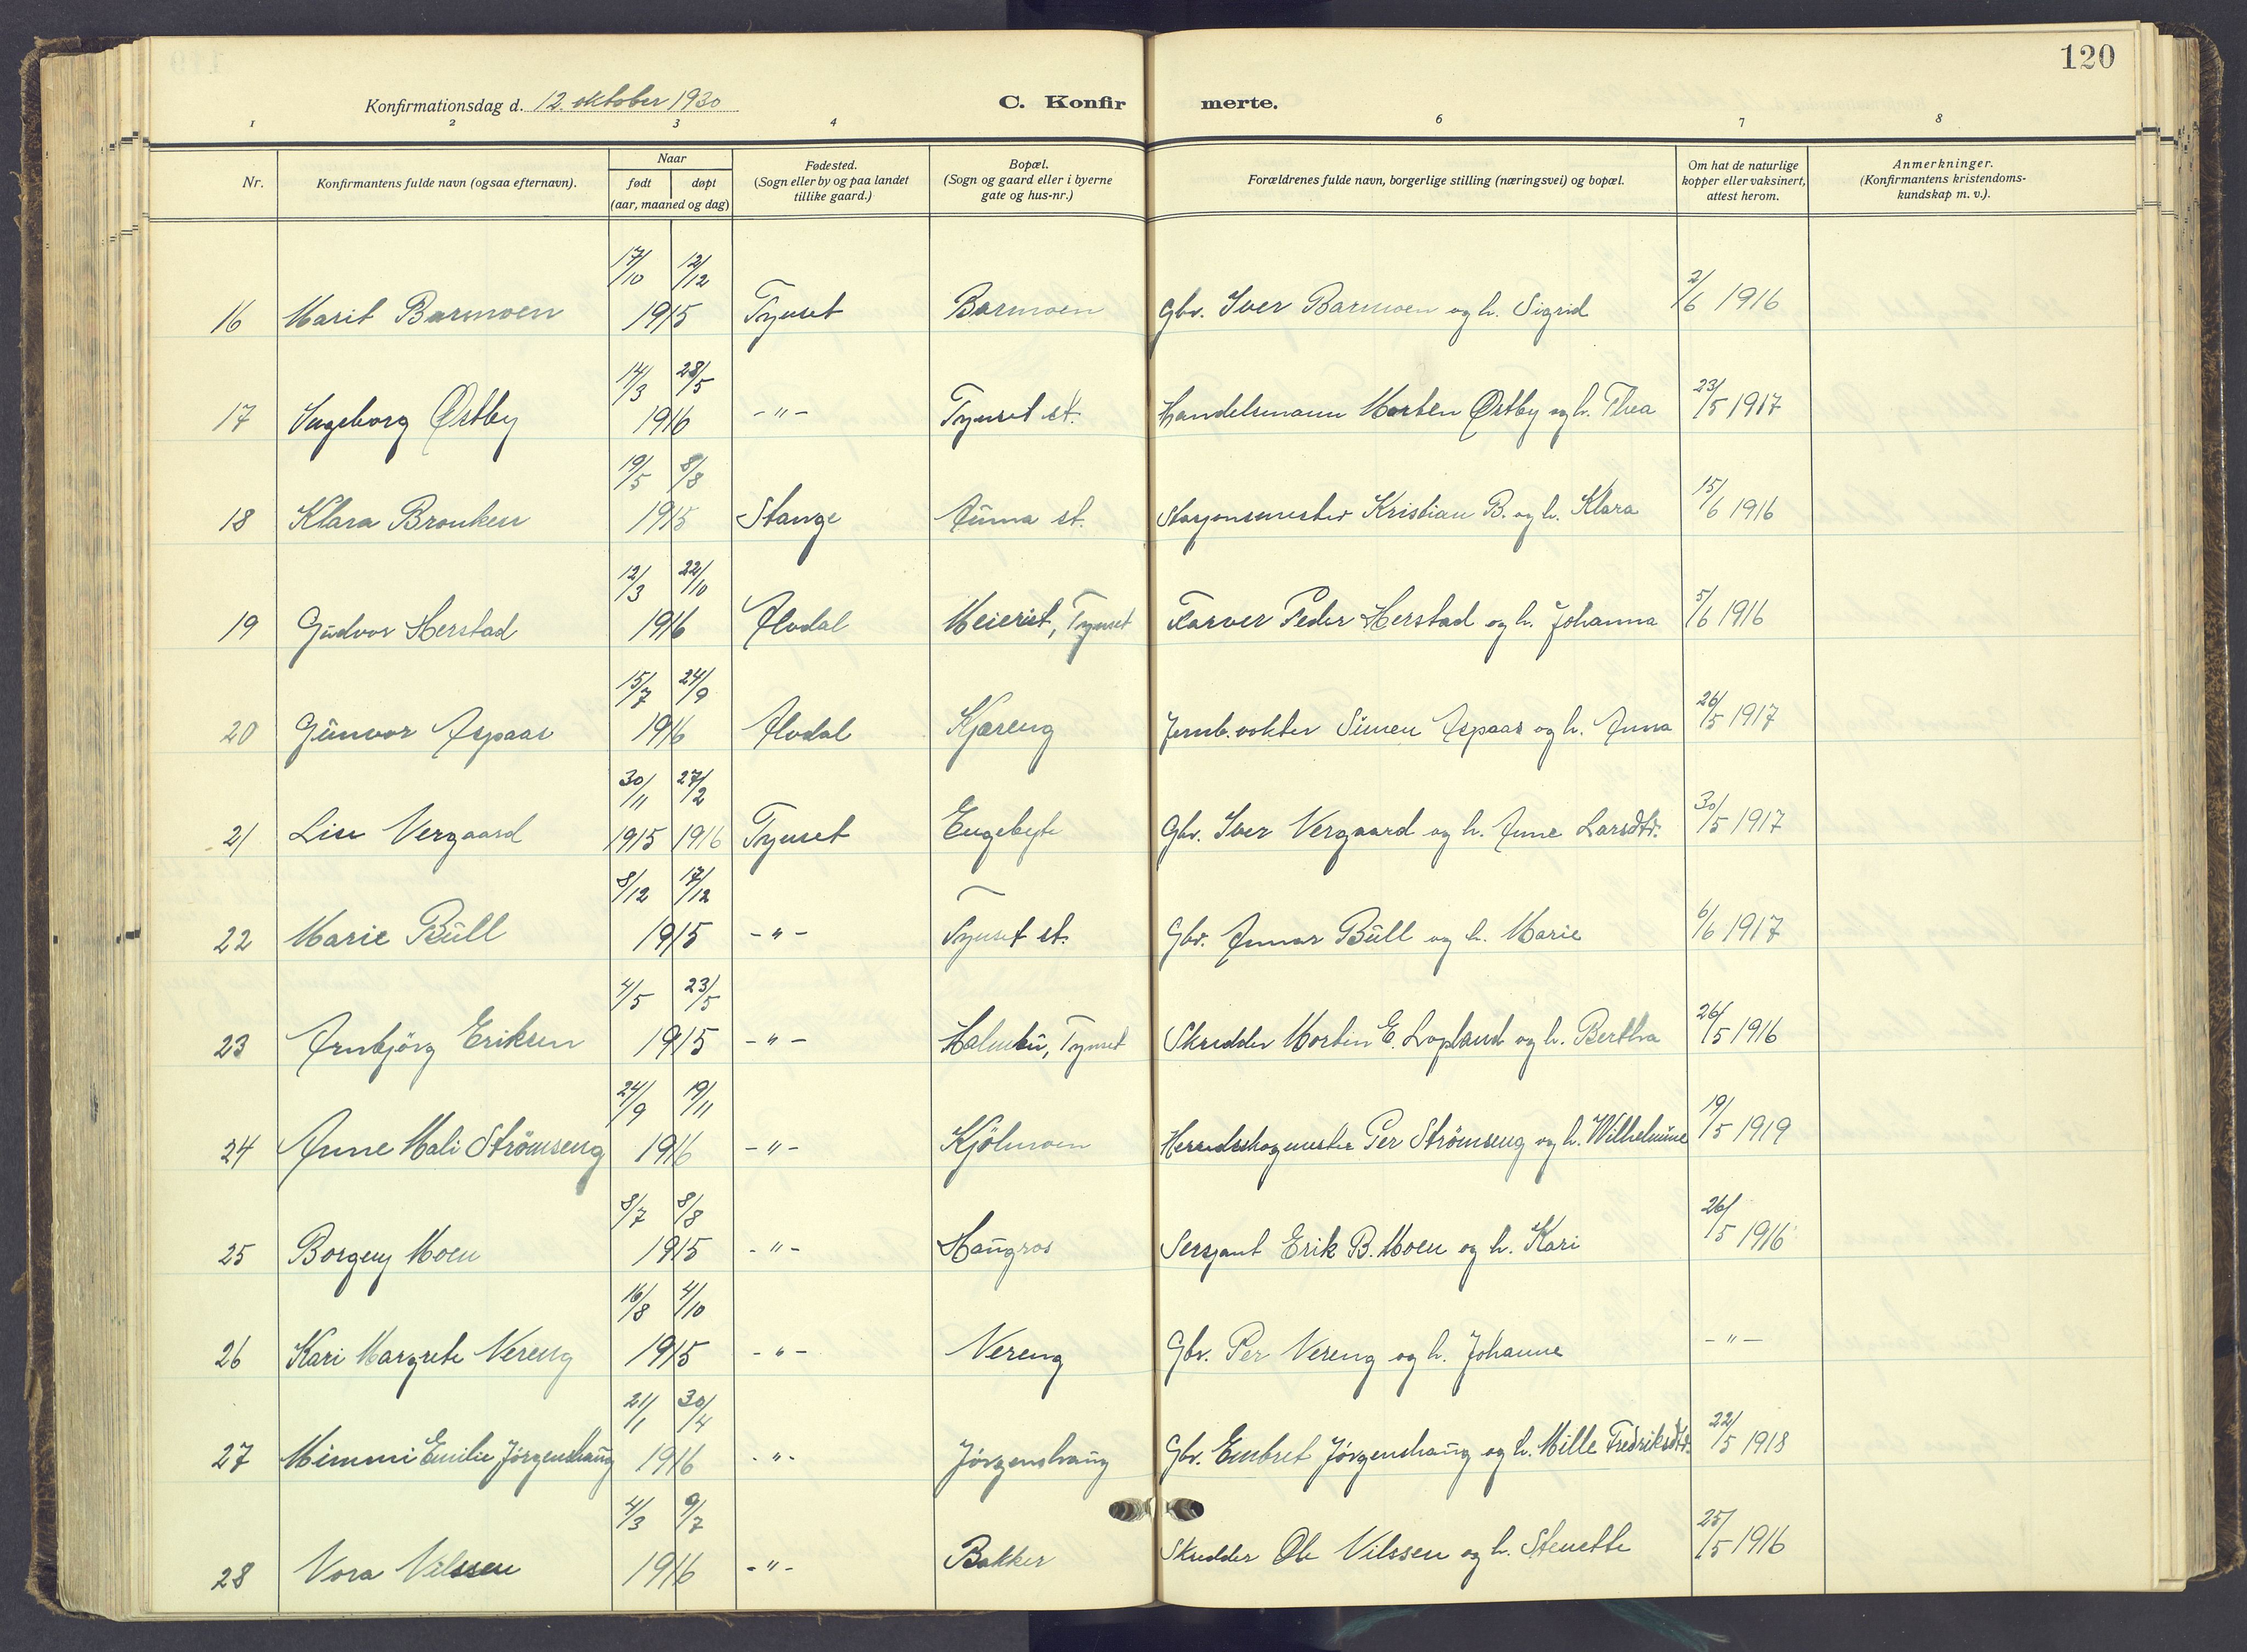 120
Konfirmationsdag d. 12. oktober 1930 C. Konfirmerte.
1 2 3 4 6 7 8
Nr. Konfirmantens fulde navn (ogsaa efternavn). Naar født døpt (aar, maaned og dag) Fødested. (Sogn eller by og paa landet tillike gaard.) Bopæl. (Sogn og gaard eller i byerne gate og hus-nr.) Forældrenes fulde navn, borgerlige stilling (næringsvei) og bopæl. Om hat de naturlige kopper eller vaksinert, attest herom. Anmerkninger. (Konfirmantens kristendoms-kundskap m. v.).
17/10 12/12
16 Marit Barmoen 1915 Tynset Barmoen Gbr. Iver Barmoen og h. Sigrid 2/6 1916
14/3 28/5
17 Ingeborg Østby 1916 -"- Tynset st. Handelsmann Morten Østby og h. Thea 23/5 1917
19/5 8/8
18 Klara Brouken 1915 Stange Auma st. Stasjonsmester Kristian B. og h. Klara 15/6 1916
12/3 22/10
19 Gudvor Herstad 1916 Alvdal Meieriet, Tynset Farver Peder Herstad og h. Johanna 5/6 1916
15/7 24/9
20 Gunvor Aspaas 1916 Alvdal Kjæreng Jernb.vokter Simen Aspaas og h. Anna 26/5 1917
30/11 27/2
21 Lise Vergaard 1915 1916 Tynset Engebyt Gbr. Iver Vergaard og h. Anne Larsdtr. 30/5 1917
8/12 17/12
22 Marie Büll 1915 -"- Tynset st. Gbr. Annar Büll og h. Marie 6/6 1917
4/5 23/5
23 Arnbjörg Eriksen 1915 -"- Tynset Skredder Morten E. Lopland og h. Bertha 26/5 1916
24/9 19/11
24 Anne Mali Strömseng 1916 -"- Kjölmoen Herredsskogmester Per Strömseng og h. Wilhelmine 19/5 1919
8/7 8/8
25 Borgny Moen 1915 -"- Haugros Sersjant Erik B. Moen og h. Kari 26/5 1916
16/8 4/10
26 Kari Margrete Nereng 1915 -"- Nereng Gbr. Per Nereng og h. Johanne -"-
21/1 30/4
27 Mimmi Emilie Jörgenshaug 1916 -"- Jörgenshaug Gbr. Embret Jörgenshaug og h. Mille Fredriksdtr. 22/5 1918
4/3 9/7
28 Nora Nilssen 1916 -"- Bakker Skredder Ole Nilssen og h. Stenette 25/5 1916